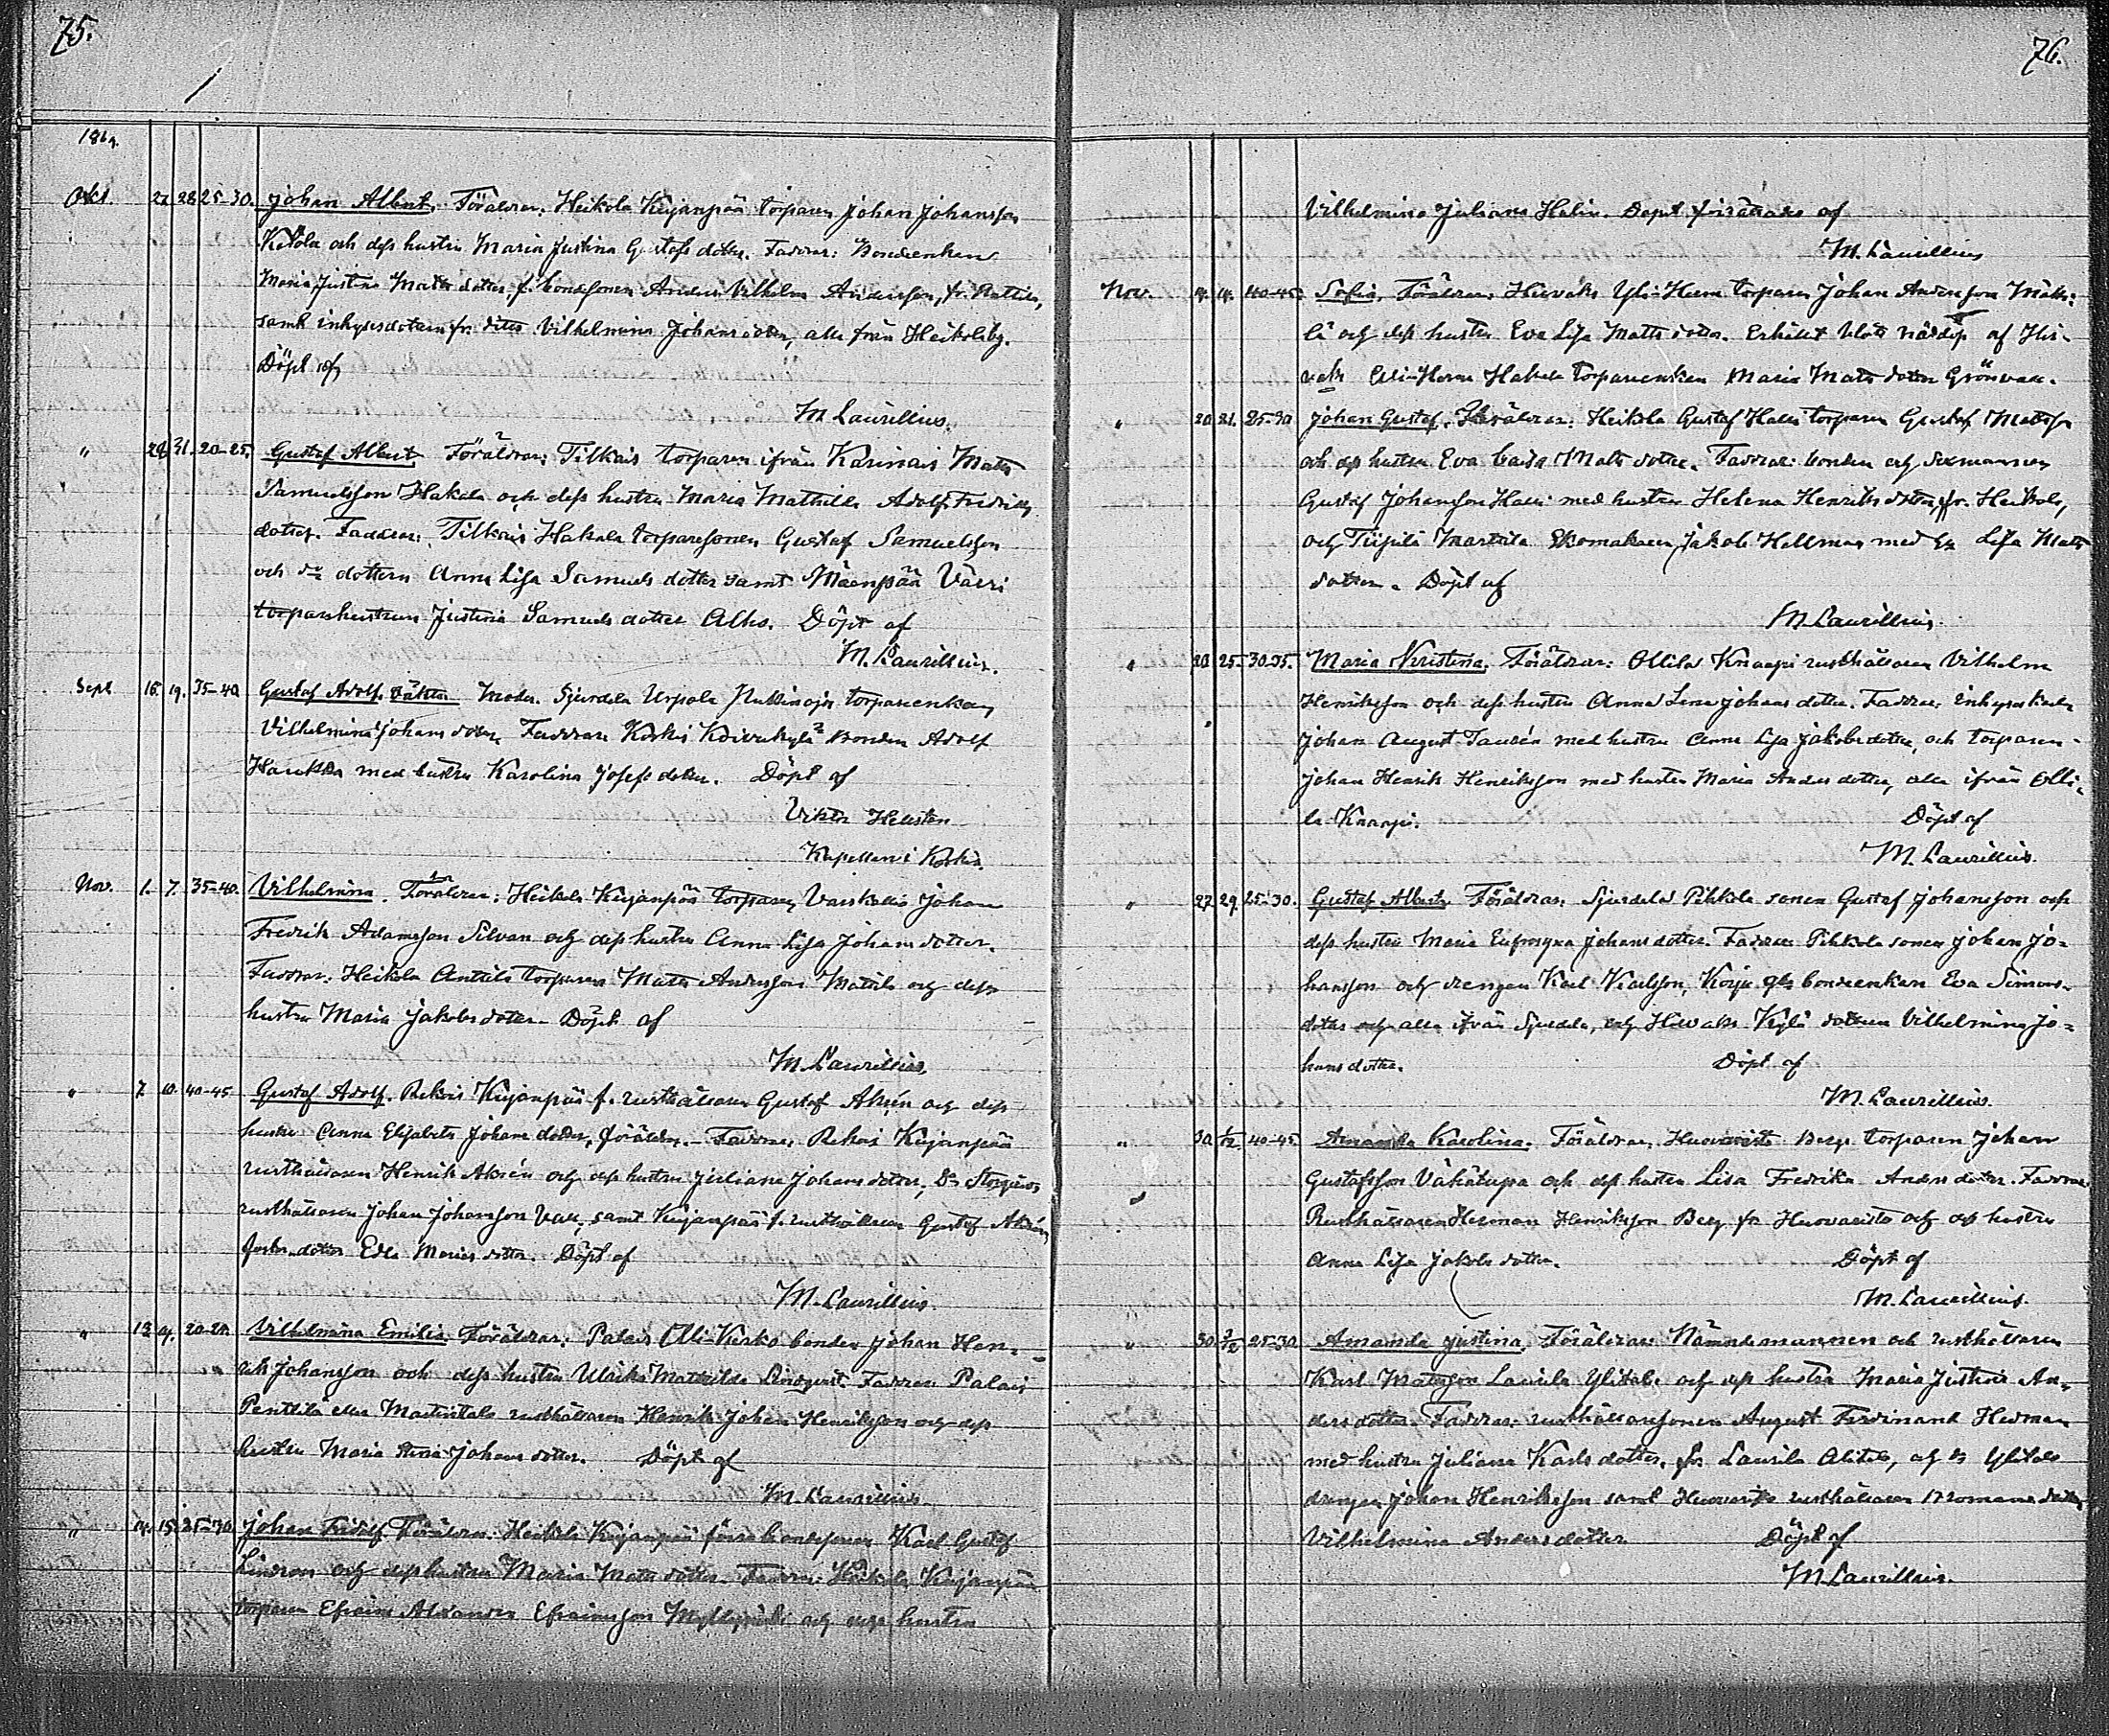 75.
1869.
Okt. 27. 28. 25-30. Johan Albert. Föräldrar: Heikola Kujanpää torparen Johan Johansson
Ketola och dess hustru Maria Justina Gustafs dotter. Faddrar: Bondeenkan
Maria Justina Matts dotter, f. bondsonen Anders Vilhelm Andersson, fr.
samt inhysesdottern fr. ditto Vilhelmina Johans dotter, alla från Heikolaby.
Döpt af
M. Laurillius.
" 28. 31. 20-25. Gustaf Albert. Föräldrar: Tilkais torparen ifrån Karinais Matts
Samuelsson Hakala och dess hustru Maria Mathilda Adolf Fredriks
dotter. Faddrar: Tilkais Hakala torparesonen Gustaf Samuelsson
och do dottern Anna Lisa Samuels dotter samt Mäenpää Väeri
torparehustrun Justina Samuels dotter Alho. Döpt af
M. Laurillius.
Sept. 16. 19. 35-40. Gustaf Adolf. oäkta Moder. Sjurdela Uspola torpareenkan
Vilhelmina Johans dotter. Faddrar: Koskis Koivukylä Bonden Adolf
Haukka med hustru Karolina Josefs dotter. Döpt af
Viktor Helisten
Kapellan i Koskis.
Nov. 1. 7. 35-40. Vilhelmina. Föräldrar: Heikola Kujanpää torparen Johan
Fredrik Adamsson Silvan och dess hustru Anna Lisa Johans dotter.
Faddrar: Heikola Anttila torparen Matts Andersson Mattila och dess
hustru Maria Jakobs dotter. Döpt af
M. Laurillius.
" 7. 10. 40-45. Gustaf Adolf. Rekois Kujanpää f. rusthållaren Gustaf Alsén och dess
hustru Anna Elisabeta Johans dotter, föräldrar. Faddrar: Rekois Kujanpää
rusthållaren Henrik Alsén och dess hustru Juliana Johans dotter, Do
rusthållaren Johan Johansson, samt Kujanpää f. rusthållaren Gustaf Alséns
foster dotter Edla Maria dotter. Döpt af
M. Laurillius.
" 13. 14. Vilhelmina Emilia. Föräldrar: Palais Olli Kirko bonden Johan Hen-
rik Johansson och dess hustru Ulrika Mathilda Lindqvist. Faddrar Palais
Penttilä eller Martintalo rusthållaren Henrik Johan Henriksson och dess
hustru Maria Stina Johans dotter. Döpt af
M. Laurillius.
" 14. 15. 25-30. Johan Fridolf. Föräldrar: Heikola Kujanpää förra bondesonen Karl Gustaf
Lindroos och dess hustru Maria Matts dotter. Faddrar: Heikola Kujanpää
torparen Efraim Alexander Efraimsson Myllymäki och dess hustru
76.
Vilhelmina Juliana Helin. Dopet förrättades af
M. Laurillius
Nov. 14. 14. 40-45. Sofia. Föräldrar: Yli-Heen torparen Johan Andersson Mäki-
lä och dess hustru Eva Lisa Matts dotter. Erhållit blott nöddop af
Hakala torpareenkan Maria Matts dotter Grönvall.
" 20. 21. 25-30. Johan Gustaf. Föräldrar: Heikola Gustaf Halli torparen Gustaf Mattsson
och dess hustru Eva Caisa Matts dotter. Faddrar: bonden och sexmannen
Gustaf Johansson Halli med hustru Helena Henriks dotter, fr. Heikola,
och Tiipilä Marttila Skomakaren Jakob Hellman med do Lisa Matts
dotter. Döpt af
M. Laurillius.
" 20. 25. 30-35. Maria Kristina. Föräldrar: Ollila Knaapi rusthållaren Vilhelm
Henriksson och dess hustru Anna Lena Johans dotter. Faddrar: Inhyses karlen
Johan August Taurén med hustru Anna Lisa Jakobs dotter, och torparen
Johan Henrik Henriksson med hustru Maria Anders dotter, alla ifrån Olli-
la Knaapi. Döpt af
M. Laurillius.
" 27. 29. 25-30. Gustaf Albert. Föräldrar: Sjurdela Pikkola sonen Gustaf Johansson och
dess hustru Maria Eufrosyna Johans dotter. Faddrar: Pikkola sonen Johan Jo-
hansson och drengen Karl Karlsson, bondeenkan Eva Simons
dotter och alla ifrån Sjurdela, och Kylä dottern Vilhelmina Jo-
hans dotter. Döpt af
M. Laurillius.
" 30. 1/12. 40-45. Amanda Karolina. Föräldrar: Huovaristo Berg torparen Johan
Gustafsson Vähätupa och dess hustru Lisa Fredrika Anders dotter. Faddrar
Rusthållaren Herman Henriksson Berg fr Huovaristo och dess hustru
Anna Lisa Jakobs dotter. Döpt af
M. Laurillius.
" 30. 25-30. Amanda Justina. Föräldrar: Nämndemannen och rusthållaren
Karl Mattsson Laurila Ylitalo och dess hustru Maria Justina An-
ders dotter. Faddrar: rusthållaresonen August Ferdinand Hedman
med hustru Juliana Karls dotter, fr Laurila Alitalo, och do Ylitalo
drengen Johan Henriksson samt Huovaristo rusthållaren dotter
Vilhelmina Anders dotter. Döpt af
M. Laurillius.